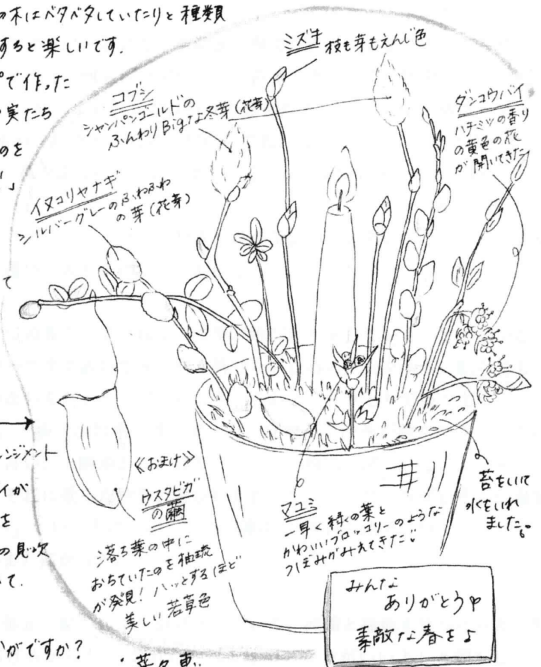 の木はベタベタしていたりと種類
すると楽しいです.
で作った
実たち
のを
て
ミズキ
枝も芽もえんじ色
コブシ
シャンパンゴールドの
ふんわりBigな冬芽(花芽)
ダンコウバイ
ハチミツの香り
の黄色の花
が開いてきた
イヌコリヤナギ
シルバーグレーのふわふわ
の芽(花芽)
レンジメント
イが
を
の見次
て.
がですか?
《おまけ》
ウスタビガ
の繭
落ち葉の中に
おちていたのを
が発見! ハッとするほど
美しい若草色
マユミ
一早く緑の葉と
かわいいブロッコリーのような
つぼみがみえてきた
苔をしいて
水をいれ
ました
みんな
ありがとう
素敵な春を